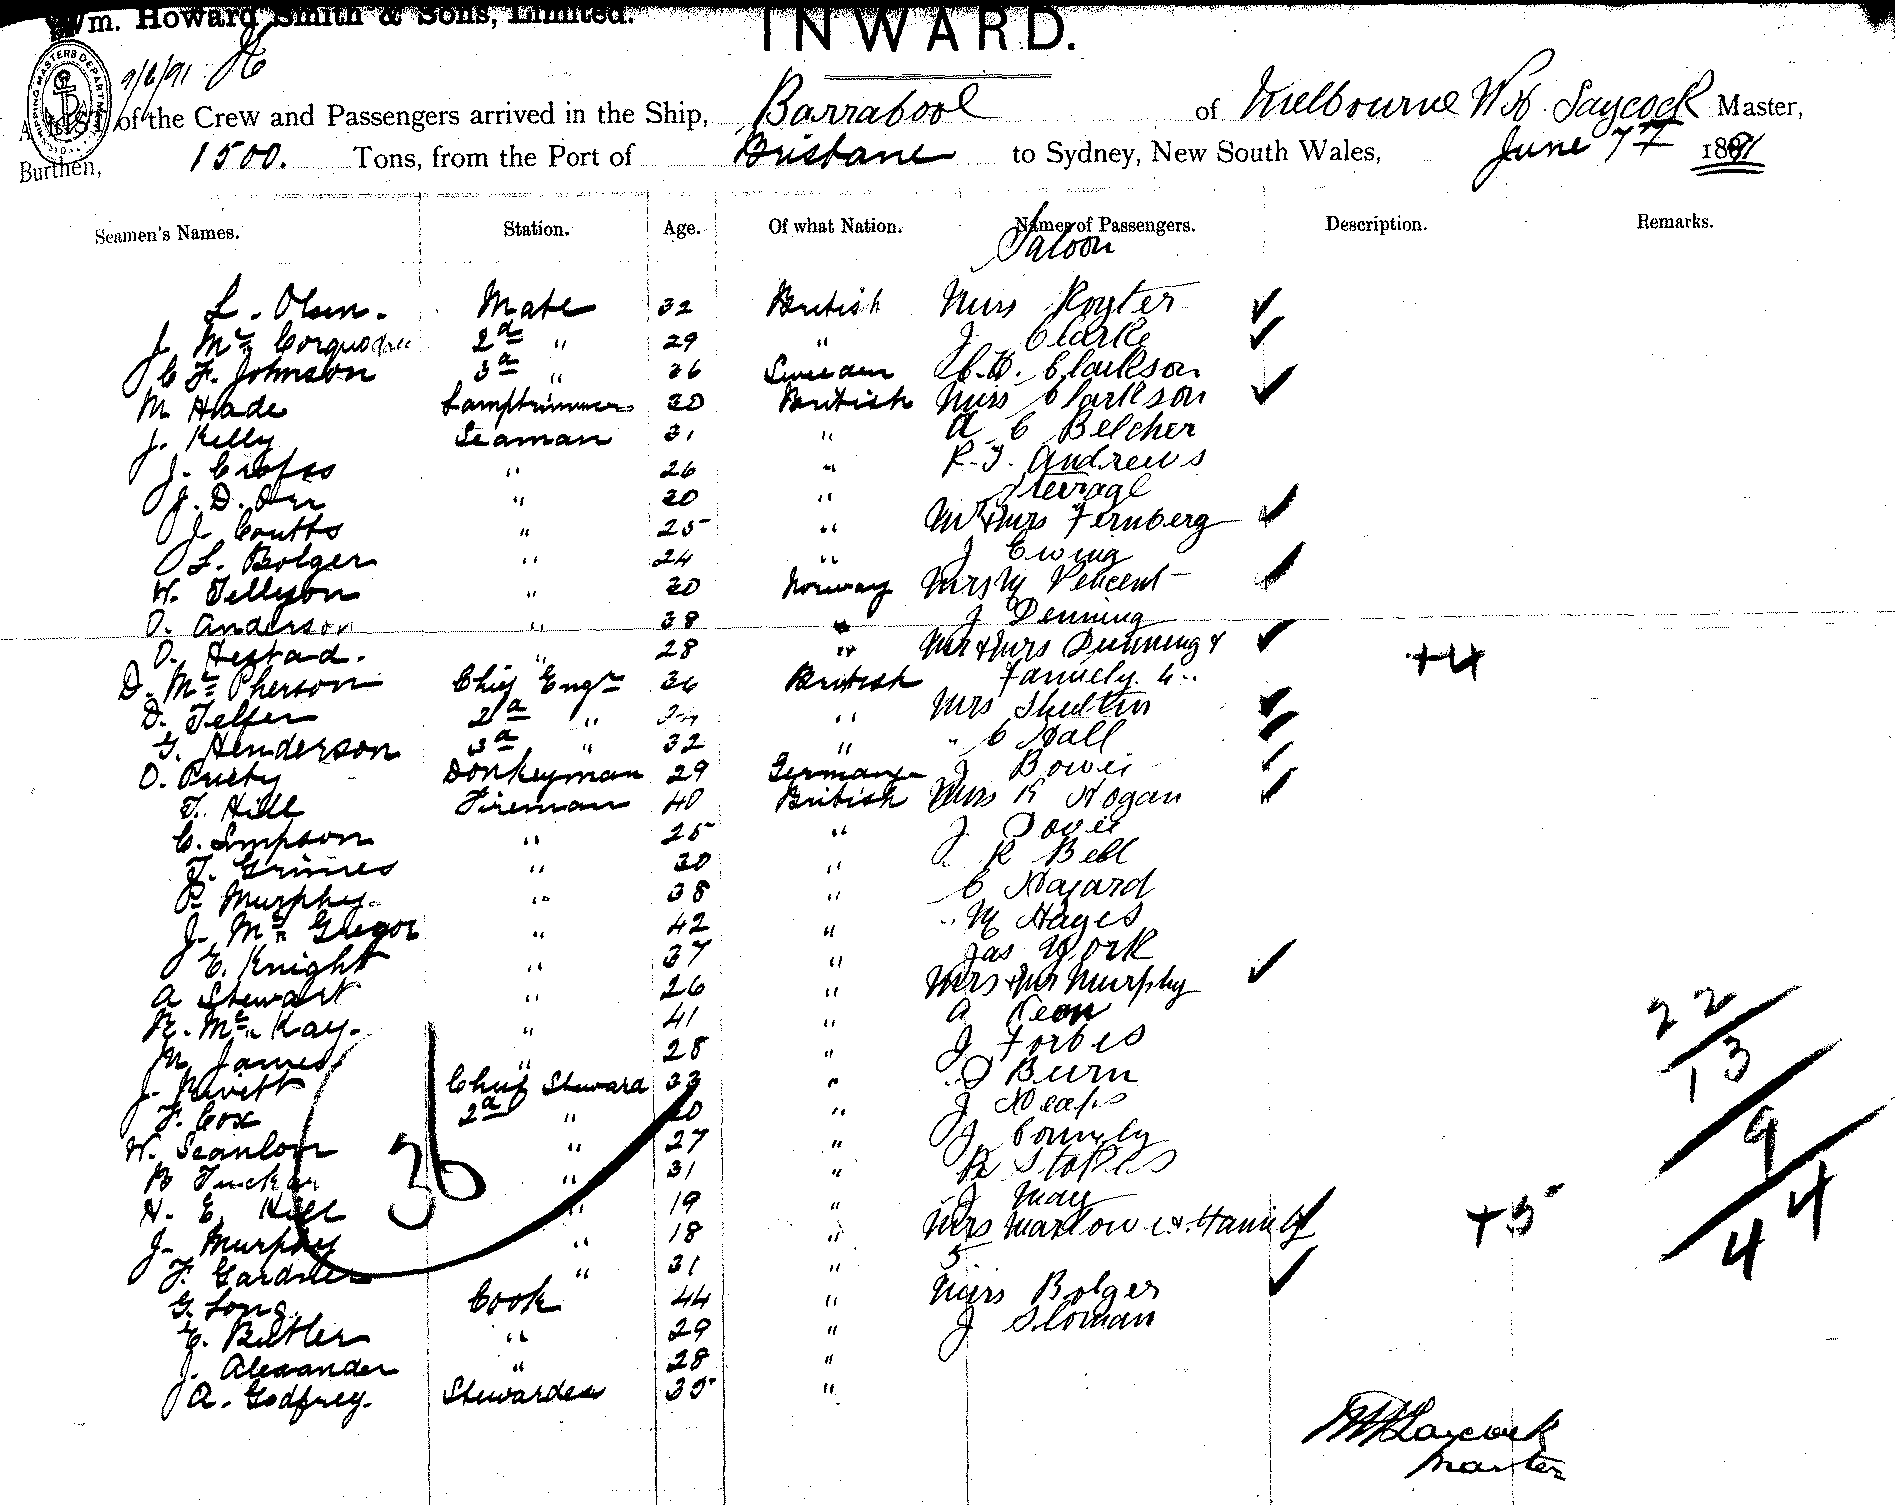 Wm. Howard Smith & Sons, Limited.
INWARD.
9/6/91
A LIST of the Crew and Passengers arrived in the Ship, Barrabool of Melbourne W H. Laycock Master,
Burthen, 1500. Tons, from the Port of Brisbane to Sydney, New South Wales, June 7th 1891
Seamen's Names. Station. Age. Of what Nation. Names of Passengers. Description. Remarks.
Saloon
L. Olsen. Mate 32 British Miss Royter
J. Mc Corquodale 2d " 29 " J Clarke
C F. Johnson 3d " 36 Sweden Clarkson
M Hade Lamptrimmer 30 British Miss Clarkson
J. Kelly Seaman 31 " A C Belcher
J. Crofss " 26 " R. J. Andrews
J. D. Orr " 20 " Steerage
J. Coutts " 25 " Mr & Mrs Fernberg
L. Bolger " 24 " J Ewing
W. Tellyson " 20 Norway Mrs M Vincent
O. Anderson " 38 " J Denning
O. Hestad. " 28 " Mr & Mrs Dunning &
D. Mc Pherson Chief Engr 36 British Family 4. +4
D. Telfer 2d " " Mrs Shelton
G. Henderson 3d " 32 " " C Hall
O. Puety Donkeyman 29 Germany J Bower
T. Hill Fireman 40 British Miss K Hogan
C. Simpson " 25 " J
T. Grimes " 30 " R Bell
P. Murphy " 38 " C Hazard
J. Mc Gregor " 42 " " M Hayes
E. Knight " 37 " Jas York
A Stewart " 26 " Mrs & Mr Murphy
R. Mc Kay. " 41 " A Keon
M. James " 28 " J Forbes
J. Rivett Chief Steward 33 " J Burn
F. Cox 2d " 20 " J Heaps
W. Scanlon " 27 " J Connoly
B Tucker " 31 " R Stokes
H. E. Hill " 19 " J May
J. Murphy " 18 " Mrs Marlow & Family +5
F. Gardner " 31 " 5
G. Long. Cook 44 " Miss Bolger
E. Butler " 29 " J Sloman
J. Alexander " 28 "
A. Godfrey. Stewardess 35 "
36
22
13
9
4
44
W H Laycock
Master